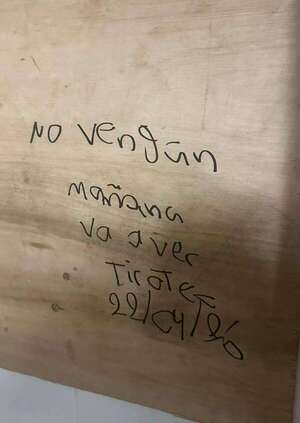 No vengún
mañana
va a ver
Tirote
22/04/